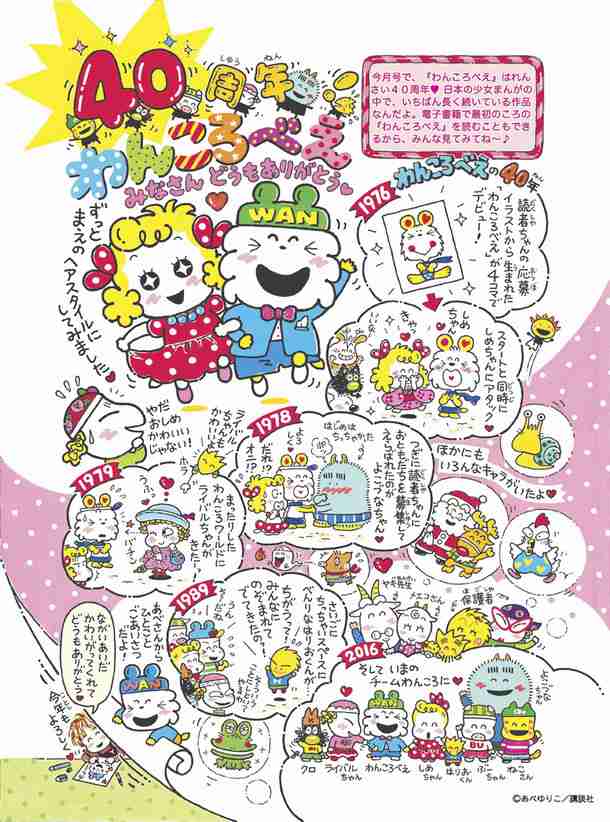 40周年
しゅうねん
わんころべえ
みなさん どうもありがとう
今月号で、『わんころべえ』はれん
さい40周年♥ 日本の少女まんがの
中で、いちばん長く続いている作品
なんだよ。電子書籍で最初のころの
『わんころべえ』を読むこともでき
るから、みんな見てみてね～♪
WAN
ずっと
まえの
ヘアスタイルに
してみました
わんころべえの40年
1976
読者ちゃんの応募
イラストから生まれた
「わんころべえ」が4コマで
デビュー!
スタートと同時に
しめちゃんにアタック
しめ
ちゃん
きゃ
やだ
おしめ
かわいい
じゃない!
1978
つぎに読者ちゃんに
おともだちを募集して
えらばれたのが
よこづなちゃん
はじめは
ちっちゃかった
だれ!?
オニ!?
ほかにも
いろんなキャラがいたよ♥
1979
まったりした
わんころワールドに
ライバルちゃんが
きた―!
ライバル
ちゃんも
かわいいよ
ホラ
うふ
バチン
1989
さいごに
ちっちゃいスペースに
べんりなはりおくんが
ちがって!
みんなに
のぞまれて
でてきたの
うん
そうだね
あべさんから
ひとこと
ごあいさつ
だよ!
WAN
ながいあいだ
かわいがってくれて
どうもありがとう
今年もよろしく
ヤギ先生
メエコさん
保護者
ほごしゃ
2016
そして いまの
チームわんころに♥
BU
クロ
ライバル
ちゃん
わんころべえ
しめ
ちゃん
はりお
くん
ぶー
ちゃん
ねこ
さん
よこづな
ちゃん
©あべゆりこ/講談社